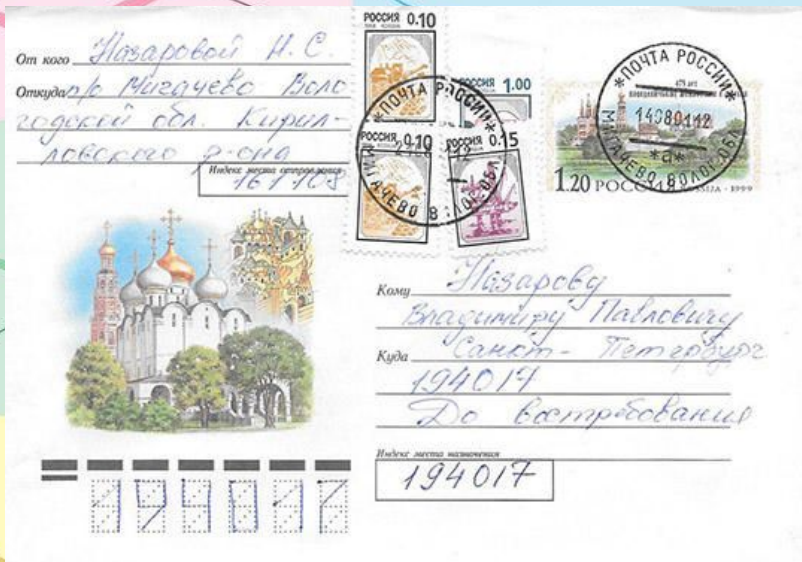 От кого Назаровой Н. С.
Откуда п/о Мигачево Воло
годской обл. Кирил-
ловского р-она
Индекс места отправления
161108
РОССИЯ 0.10
РОССИЯ 1.00
РОССИЯ 0.10
РОССИЯ 0.15
ПОЧТА РОССИИ
МИГАЧЕВО ВОЛОГ.ОБЛ.
*ПОЧТА РОССИИ*
14080112
*а*
МИГАЧЕВО ВОЛОГ.ОБЛ.
1.20 РОССИЯ ROSSIJA · 1999
Кому Назарову
Владимиру Павловичу
Куда Санкт-Петербург
194017
До востребования
Индекс места назначения
194017
194017